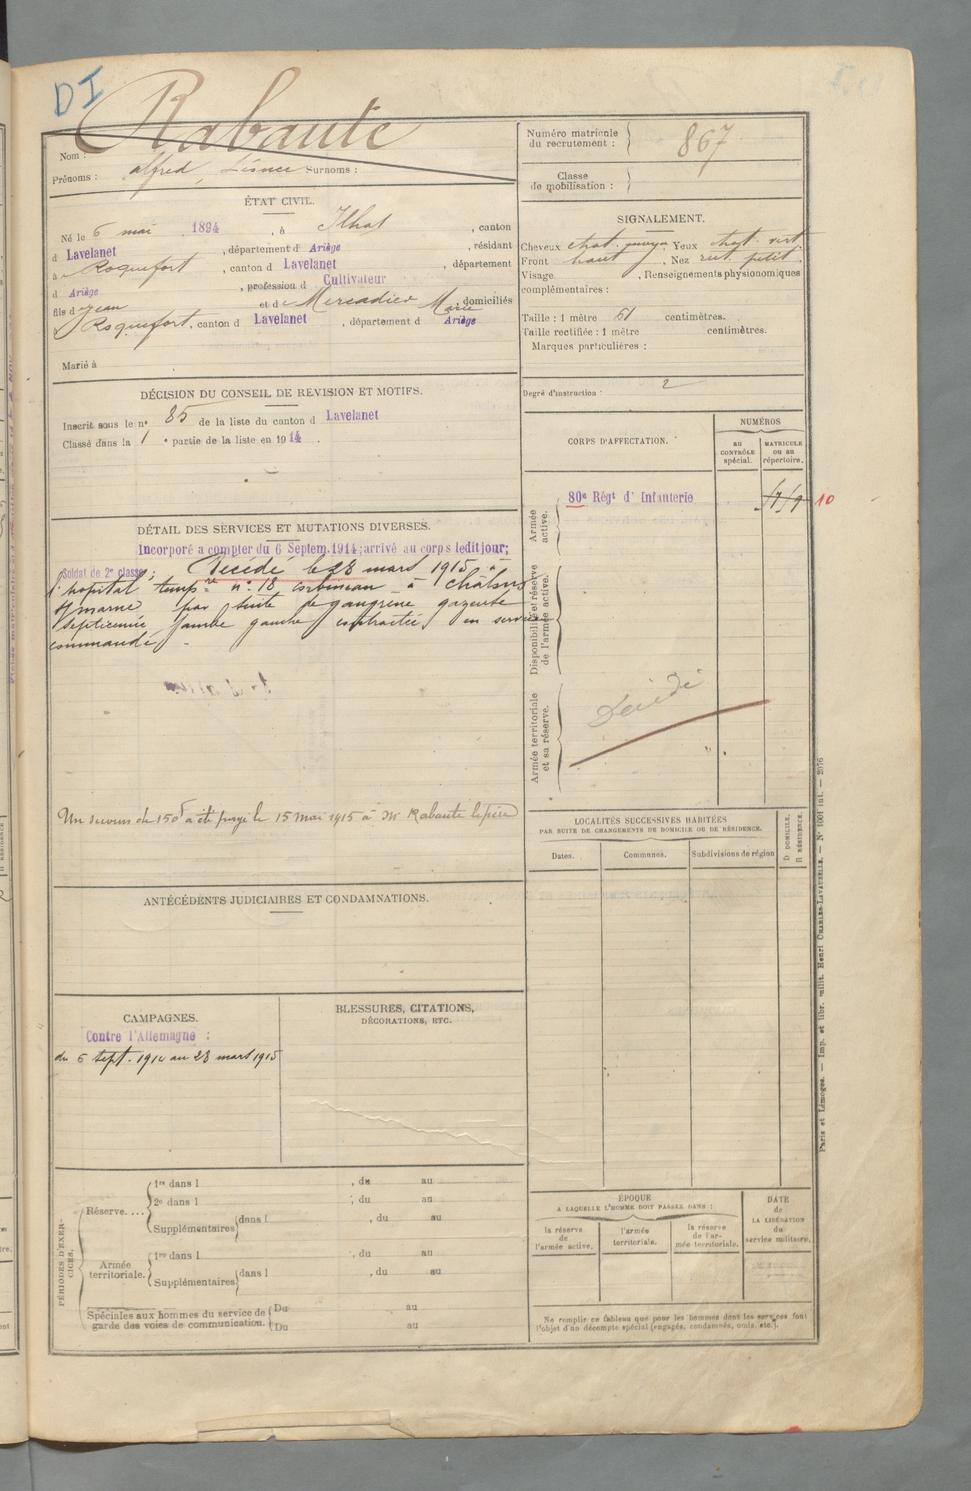 DI
Rabaute
Nom :
Prénoms : alfred, Surnoms :
ÉTAT CIVIL.
Né le 6 mai 1894, à Ilhat, canton
d Lavelanet, département d Ariège, résidant
à Roquefort, canton d Lavelanet, département
d Ariège, profession d Cultivateur
fils d Jean et d Mercadier Marie, domiciliés
à Roquefort, canton d Lavelanet, département d Ariège
Marié à
DÉCISION DU CONSEIL DE REVISION ET MOTIFS.
Inscrit sous le n° 85 de la liste du canton d Lavelanet
Classé dans la 1e partie de la liste en 1914.
DÉTAIL DES SERVICES ET MUTATIONS DIVERSES.
Incorporé a compter du 6 Septem. 1914; arrivé au corps ledit jour;
Soldat de 2e classe; Décédé le 23 mars 1915 à
l'hopital tempre n° 18 corbineau à Châlons
s/marne par suite de gangrène gazeuse
septicemie jambe gauche contractée en service
commandé.
Un secours de 150f a été payé le 15 mai 1915 à Mr Rabaute le père
ANTÉCÉDENTS JUDICIAIRES ET CONDAMNATIONS.
CAMPAGNES.
Contre l'Allemagne :
du 6 sept. 1914 au 23 mars 1915
BLESSURES, CITATIONS,
DÉCORATIONS, ETC.
PÉRIODES D'EXERCICES.
Réserve....
1re dans l , du au
2e dans l , du au
Supplémentaires dans l , du au
Armée territoriale.
1re dans l , du au
Supplémentaires dans l , du au
Spéciales aux hommes du service de
garde des voies de communication.
Du au
Du au
Numéro matricule
du recrutement : 867
Classe
de mobilisation :
SIGNALEMENT.
Cheveux chat. Yeux vert
Front haut, Nez petit.
Visage , Renseignements physionomiques
complémentaires :
Taille : 1 mètre 61 centimètres.
Taille rectifiée : 1 mètre centimètres.
Marques particulières :
Degré d'instruction : 2
CORPS D'AFFECTATION.
NUMÉROS
au CONTRÔLE spécial.
MATRICULE ou au répertoire.
Armée active.
80e Régt d' Infanterie
10
Disponibilité et réserve de l'armée active.
Armée territoriale et sa réserve.
Décédé
LOCALITÉS SUCCESSIVES HABITÉES
PAR SUITE DE CHANGEMENTS DE DOMICILE OU DE RÉSIDENCE.
Dates.
Communes.
Subdivisions de région
D DOMICILE.
R RÉSIDENCE.
ÉPOQUE
A LAQUELLE L'HOMME DOIT PASSER DANS :
la réserve de l'armée active.
l'armée territoriale.
la réserve de l'armée territoriale.
DATE
de
LA LIBÉRATION
du
service militaire.
Ne remplir ce tableau que pour les hommes dont les services font
l'objet d'un décompte spécial (engagés, condamnés, omis, etc.).
Paris et Limoges. — Imp. et libr. milit. Henri CHARLES-LAVAUZELLE. — N° 1001 int. — 2076